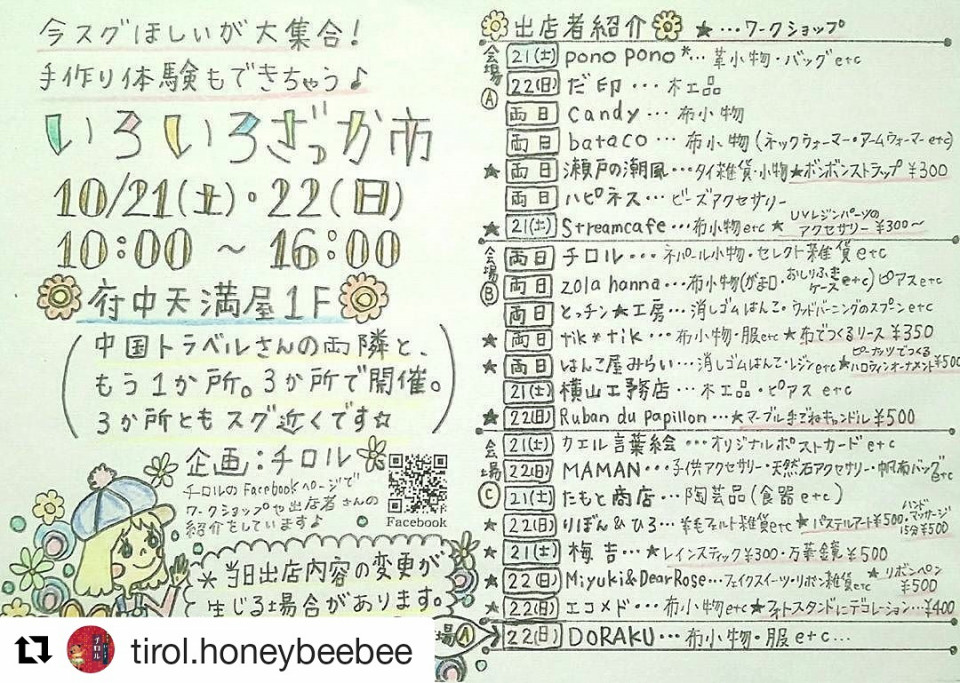 今スグほしいが大集合!
手作り体験もできちゃう♪
いろいろざっか市
10/21(土)・22(日)
10:00 ~ 16:00
府中天満屋1F
(中国トラベルさんの両隣と、
もう1か所。3か所で開催。
3か所ともスグ近くです☆)
企画:チロル
チロルのFacebookページで
ワークショップや出店者さんの
紹介をしています♪
Facebook
*当日出店内容の変更が
生じる場合があります。
tirol.honeybeebee
出店者紹介 ★…ワークショップ
会場Ⓐ
21(土) pono pono*…革小物・バッグetc
22(日) だ印…木工品
両日 candy…布小物
両日 bataco…布小物(ネックウォーマー・アームウォーマーetc)
★ 両日 瀬戸の潮風…タイ雑貨・小物★ボンボンストラップ¥300
両日 ハピネス…ビーズアクセサリー
★ 21(土) Streamcafe…布小物etc ★UVレジンパーツのアクセサリー¥300~
会場Ⓑ
両日 チロル…ネパール小物・セレクト雑貨etc
両日 zola hanna…布小物(がま口・おしりふきケースetc)ピアスetc
両日 とッチン★工房…消しゴムはんこ・ウッドバーニングのスプーンetc
★ 両日 tik*tik…布小物・服etc★布でつくるリース¥350
★ 両日 はんこ屋みらい…消しゴムはんこ・レジンetc★ピーナッツでつくるハロウィンオーナメント¥500
21(土) 横山工務店…木工品・ピアスetc
★ 22(日) Ruban du Papillon…★マーブル手ごねキャンドル¥500
会場Ⓒ
21(土) カエル言葉絵…オリジナルポストカードetc
22(日) MAMAN…子供アクセサリー・天然石アクセサリー・帆布バッグetc
21(土) たもと商店…陶芸品(食器etc)
★ 22(日) りぼん&ひろ…羊毛フェルト雑貨etc★パステルアート¥500・ハンドマッサージ15分¥500
★ 21(土) 梅吉…★レインスティック¥300・万華鏡¥500
★ 22(日) Miyuki&DearRose…フェイクスイーツ・リボン雑貨etc★リボンペン¥500
★ 22(日) エコメド…布小物etc★フォトスタンドにデコレーション…¥400
場Ⓐ 22(日) DORAKU…布小物・服etc…